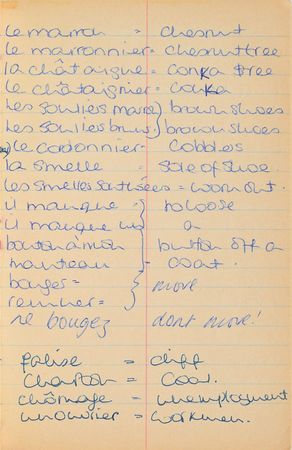 le marron = chesnut
le marronnier = chesnut tree
la châtaigne = conka tree
le châtaignier = conka
Les souliers brown shoes
Les souliers bruns brown shoes
le cordonnier - cobbles
la smelle = sole of shoe.
les smelles = worn out.
il manque = to loose
il manque un a
bouton à mon button off a
manteau - coat.
bouger = move
remuer =
ne bougez dont move!
falise = cliff
Charbon = Coal.
chômage = unemployment
un ouvrier = workmen.